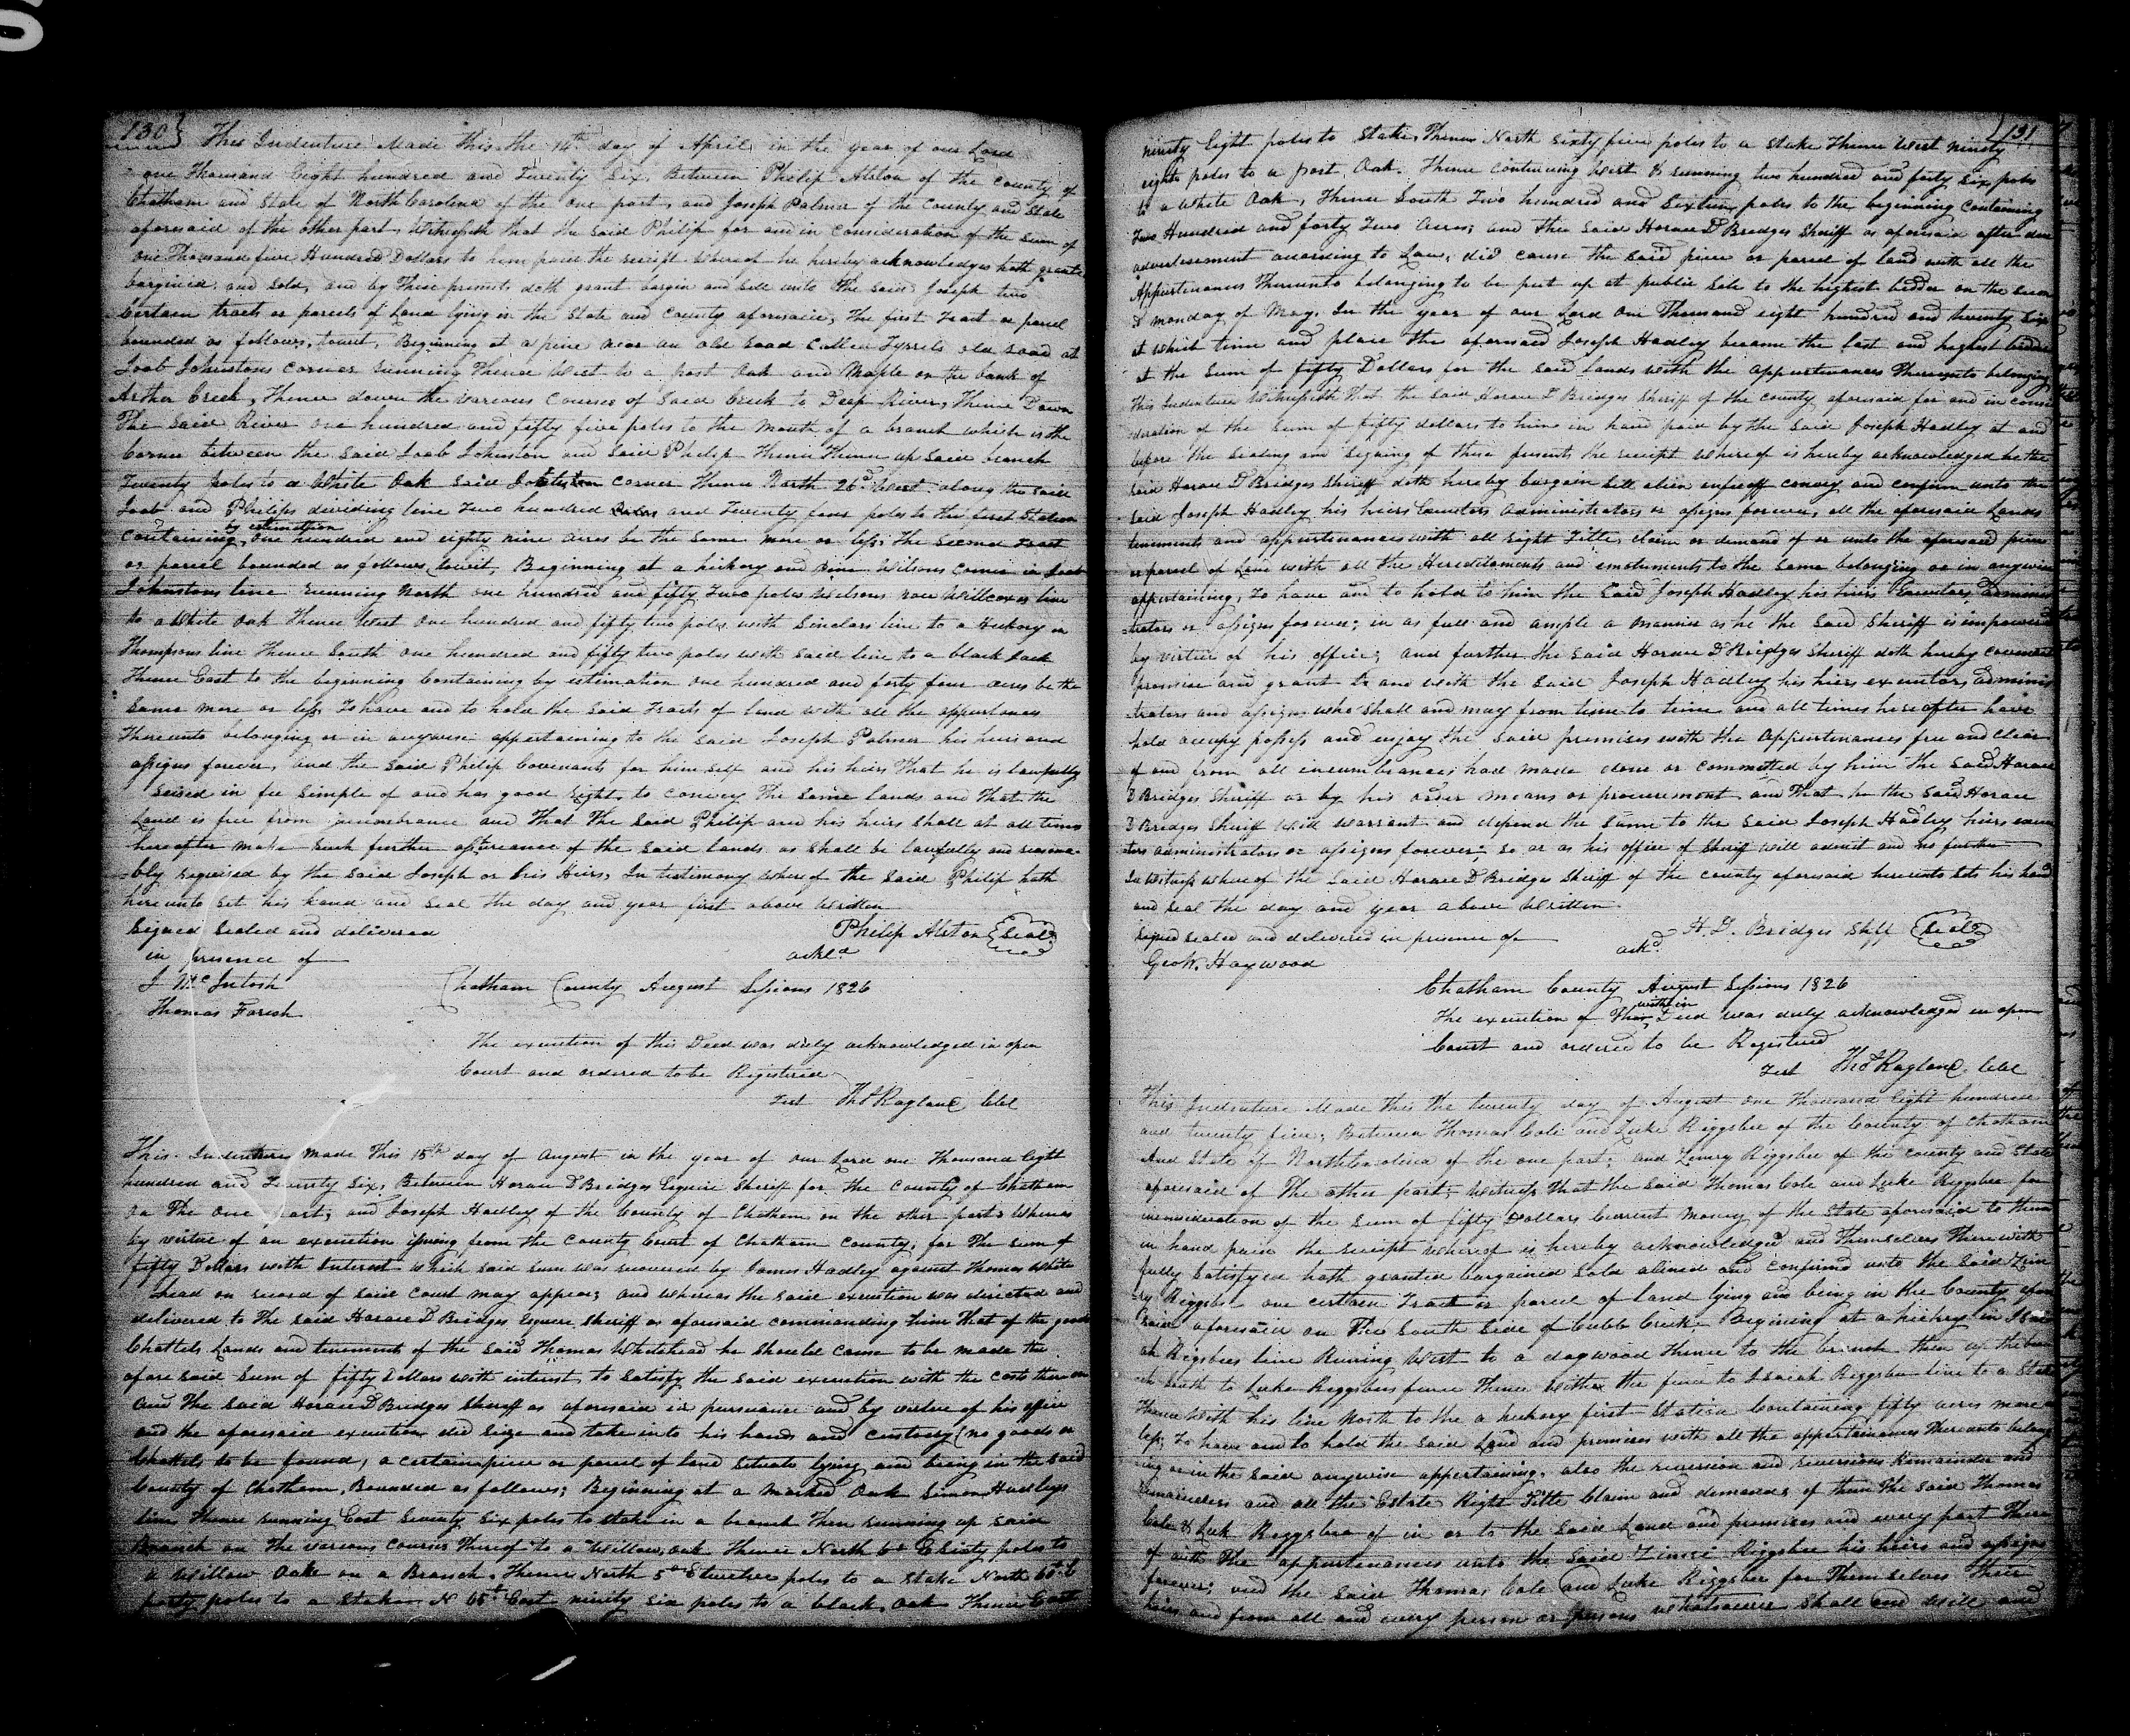 130
This Indenture Made this the 14th day of April in the year of our Lord
one Thousand Eight hundred and Twenty Six, Between Philip Alston of the County of
Chatham and State of North Carolina of the one part, and Joseph Palmer of the County and State
aforesaid of the other part Witnesseth that the said Philip for and in consideration of the sum of
one Thousand five Hundred Dollars to him paid the receipt whereof he hereby acknowledges hath granted
bargined and sold, and by These presents doth grant bargin and sell unto the said Joseph two
Certain tracts or parcels of Land lying in the State and County aforesaid, The first Tract or parcel
bounded as follows, towit, Beginning at a pine near an old road Called Tyrrels old road at
Joab Johnstons corner running Thence West to a post Oak and Maple on the bank of
Arthor Creek, Thence down the various Courses of said Creek to Deep River, Thence Down
The said River one hundred and fifty five poles to the mouth of a branch which is the
Corner between the said Joab Johnston and said Philip Thence Thence up said branch
Twenty poles to a White Oak said Johnston corner Thence North 26d West along the said
Joab and Philips deviding line Two hundred and Twenty four poles to the first Station
Containing by estimation one hundred and eighty nine acres be the same more or less, The second Tract
or parcel bounded as follows, towit, Beginning at a hickory and Pine Wilsons Corner in Joab
Johnstons line running North one hundred and fifty Two poles Wilsons now Willcoxes line
to a White Oak Thence West one hundred and fifty two poles with Sinclars line to a Hickory in
Thompsons line Thence South one hundred and fifty two poles with said line to a black Jack
Thence East to the beginning Containing by estimation one hundred and forty four acres be the
same more or less To have and to hold the said Tracts of land with all the appurtances
Thereunto belonging or in anywise appertaining to the said Joseph Palmer his heirs and
assigns forever, and the said Philip Covenants for himself and his heirs That he is lawfully
seised in fee simple of and has good right to convey The same lands and That the
Land is free from incumbrance and That The said Philip and his heirs shall at all times
hereafter make such further assureance of the said lands as shall be lawfully and reasona-
-bly required by the said Joseph or his Heirs, In testimony whereof the said Philip hath
hereunto set his hand and seal the day and year first above written
Signed sealed and delivered Philip Alston Seal
in presence of ackd
J McIntosh Chatham County August Sessions 1826
Thomas Farish
The execution of this Deed was duly acknowledged in open
Court and ordered to be Registered
Test Thos Ragland Clk
This Indenture made This 15th day of August in the year of our Lord one Thousand Eight
hundred and Twenty Six, Between Horace D Bridges Esquire Sheriff for the County of Chatham
on The one part; and Joseph Hadley of the County of Chatham on the other part, Whereas
by virtue of an execution issuing from the County Court of Chatham County, for The sum of
fifty Dollars with Interest which said sum was recovered by James Hadley against Thomas White
head on record of said Court may appear; and whereas the said execution was directed and
delivered to The said Horace D Bridges Esquire Sheriff as aforesaid commanding him That of the goods
Chattels Lands and tenements of the said Thomas Whitehead he should cause to be made the
aforesaid sum of fifty Dollars with interest, to satisfy the said execution with the costs thereon
and The said Horace D Bridges Sheriff as aforesaid in pursuance and by virtue of his office
and the aforesaid execution did seize and take into his hands and custody (no goods or
Chattels to be found, a certain piece or parcel of land situate lying and being in the said
County of Chatham, Bounded as follows; Beginning at a marked Oak Simon Hadleys
line Thence running East seventy six poles to stake in a branch Then running up said
Branch on The various courses Thereof to a Willow, oak Thence North Eighty poles to
a Willow Oak on a Branch, Thence North poles to a Stake North
forty poles to a Stake N 65d East ninety six poles to a black Oak Thence East
131
ninety Eight poles to Stake, Thence North sixty five poles to a stake Thence West ninety
eight poles to a post Oak. Thence continuing West & running two hundred and forty six poles
to a White Oak, Thence South Two hundred and Sixteen poles to the beginning Containing
Two Hundred and forty Two acres; and The said Horace D Bridges Sheriff as aforesaid after due
advertisement according to Law, did cause the said piece or parcel of land with all the
Appurtenances Thereunto belonging to be put up at public sale to the highest bidder on the secon
d monday of May. In the year of our Lord One Thousand eight hundred and twenty six
at which time and place the aforesaid Joseph Hadley became the last and highest bidder
at the sum of fifty Dollars for the said Lands with the appurtenances Thereunto belonging
This Indenture Witnesseth That the said Horace D Bridges Sheriff of the County aforesaid for and in consi
deration of the sum of fifty dollars to him in hand paid by the said Joseph Hadley at and
before the sealing and signing of these presents the receipt whereof is hereby acknowledged he the
said Horace D Bridges Sheriff doth hereby bargain sell alien enfeoff convey and confirm unto the
said Joseph Hadley his heirs Executors administrators or assigns forever, all the aforesaid Lands
tenements and appurtenances with all right Title claim or demand of or unto the aforesaid piece
or parcel of Land with all the Hereditaments and emoluments to the same belonging or in anywise
appertaining, To have and to hold to him the said Joseph Hadley his heirs Executors, adminis
-trators or assigns forever; in as full and ample a manner as he the said Sheriff is impowered
by virtue of his office; and further the said Horace D Bridges Sheriff doth hereby covenant
promise and grant to and with the said Joseph Hadley his hiers executors, adminis
-trators and assigns who shall and may from time to time and all times hereafter have
hold occupy possess and enjoy the said premises with the appurtenances free and clear
of and from all incumbrances had made done or committed by him the said Horace
D Bridges Sheriff or by his order means or procurement and That he the said Horace
D Bridges Sheriff will warrant and depend the same to the said Joseph Hadley heirs execu
tors administrators or assigns forever; so as his office of Sheriff will admit and no further
In witness whereof the said Horace D Bridges Sheriff of the county aforesaid hereunto sets his hand
and seal the day and year above written
Signed sealed and delivered in presence of H. D. Bridges Shff Seal
Geo W. Haywood ackd
Chatham County August Sessions 1826
The execution of within Deed was duly acknowledged in open
Court and ordered to be Registered
Test Thos Ragland Clk
This Indenture Made this the twenty day of August one thousand Eight hundred
and twenty five; Between Thomas Cole and Luke Riggsbee of the County of Chatham
And State of North Carolina of the one part; and Zimry Riggsbee of the County and State
aforesaid of The other part; Witness that the said Thomas Cole and Luke Riggsbee for
inconsideration of the sum of fifty Dollars Current Money of the State aforesaid to them
in hand paid the receipt whereof is hereby acknowledged and Themselves Therewith
fully satisfyed hath granted bargained sold aliened and confirmed unto the said Zim
ry Riggsbee one certain Tract or parcel of land lying and being in the County afore
said aforesaid on The South side of Cubb Creek. Begining at a hickry in Isai
ah Rigsbees line Runing West to a dogwood Thence to the branch then up the bran
ch South to Luke Riggsbees fence Thence with the fence to Isaiah Riggsbee line to a Stake
Thence With his line North to the a hickory first Station Containing fifty acres more or
less; To have and to hold the said Land and premises with all the appertainances Thereunto belong
ing or in the said anywise appertaining, also the reversion and reversions Remainder and
Remainders and all the Estate Right Title Claim and demands of them The said Thomas
Cole & Luk Riggsbee of in or to the said Land and premises and every part There
of with The appurtenances unto the said Zimri Riggsbee his heirs and assigns
forever; and the said Thomas Cole and Luke Riggsbee for Themselves Their
heirs and from all and every person or persons whatsoever shall and will and